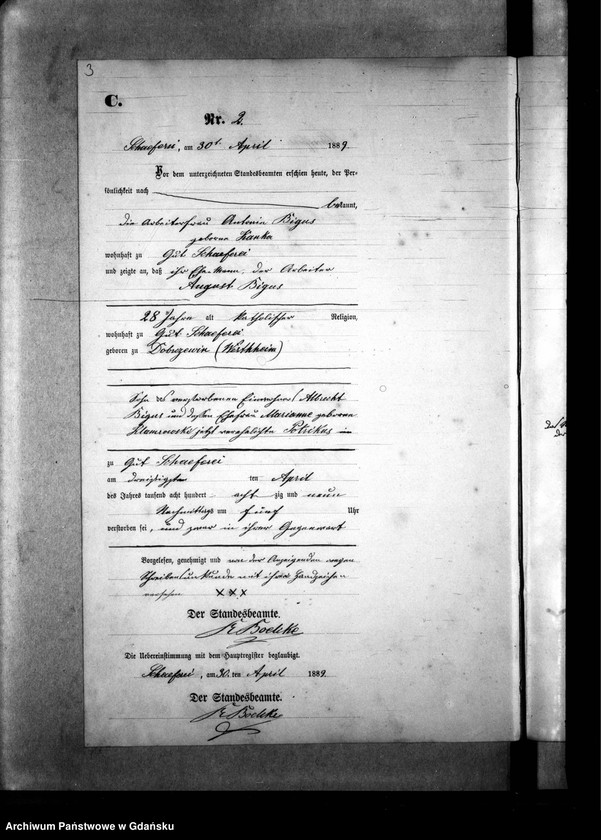 3
C.
Nr. 2.
Schaeferei, am 30t. April 1889.
Vor dem unterzeichneten Standesbeamten erschien heute, der Per-
sönlichkeit nach
bekannt,
die Arbeiterfrau Antonia Bigus
geborene Kanka
wohnhaft zu Gut Schaeferei
und zeigte an, daß ihr Ehemann, der Arbeiter
August Bigus
28 Jahre alt katholischer Religion,
wohnhaft zu Gut Schaeferei
geboren zu Dobrzewin (Werthheim)
Sohn des verstorbenen Einwohners Albrecht
Bigus und dessen Ehefrau Marianne geborene
jetzt verehelichte
zu Gut Schaeferei
am dreißigsten ten April
des Jahres tausend acht hundert acht zig und neun
Nachmittags um fünf Uhr
verstorben sei, und zwar in ihrer Gegenwart
Vorgelesen, genehmigt und von der Anzeigenden wegen
Schreibensunkunde mit ihrem Handzeichen
versehen XXX
Der Standesbeamte.
Boelcke
Die Uebereinstimmung mit dem Hauptregister beglaubigt.
Schaeferei, am 30. ten April 1889
Der Standesbeamte.
Boelcke
Archiwum Państwowe w Gdańsku